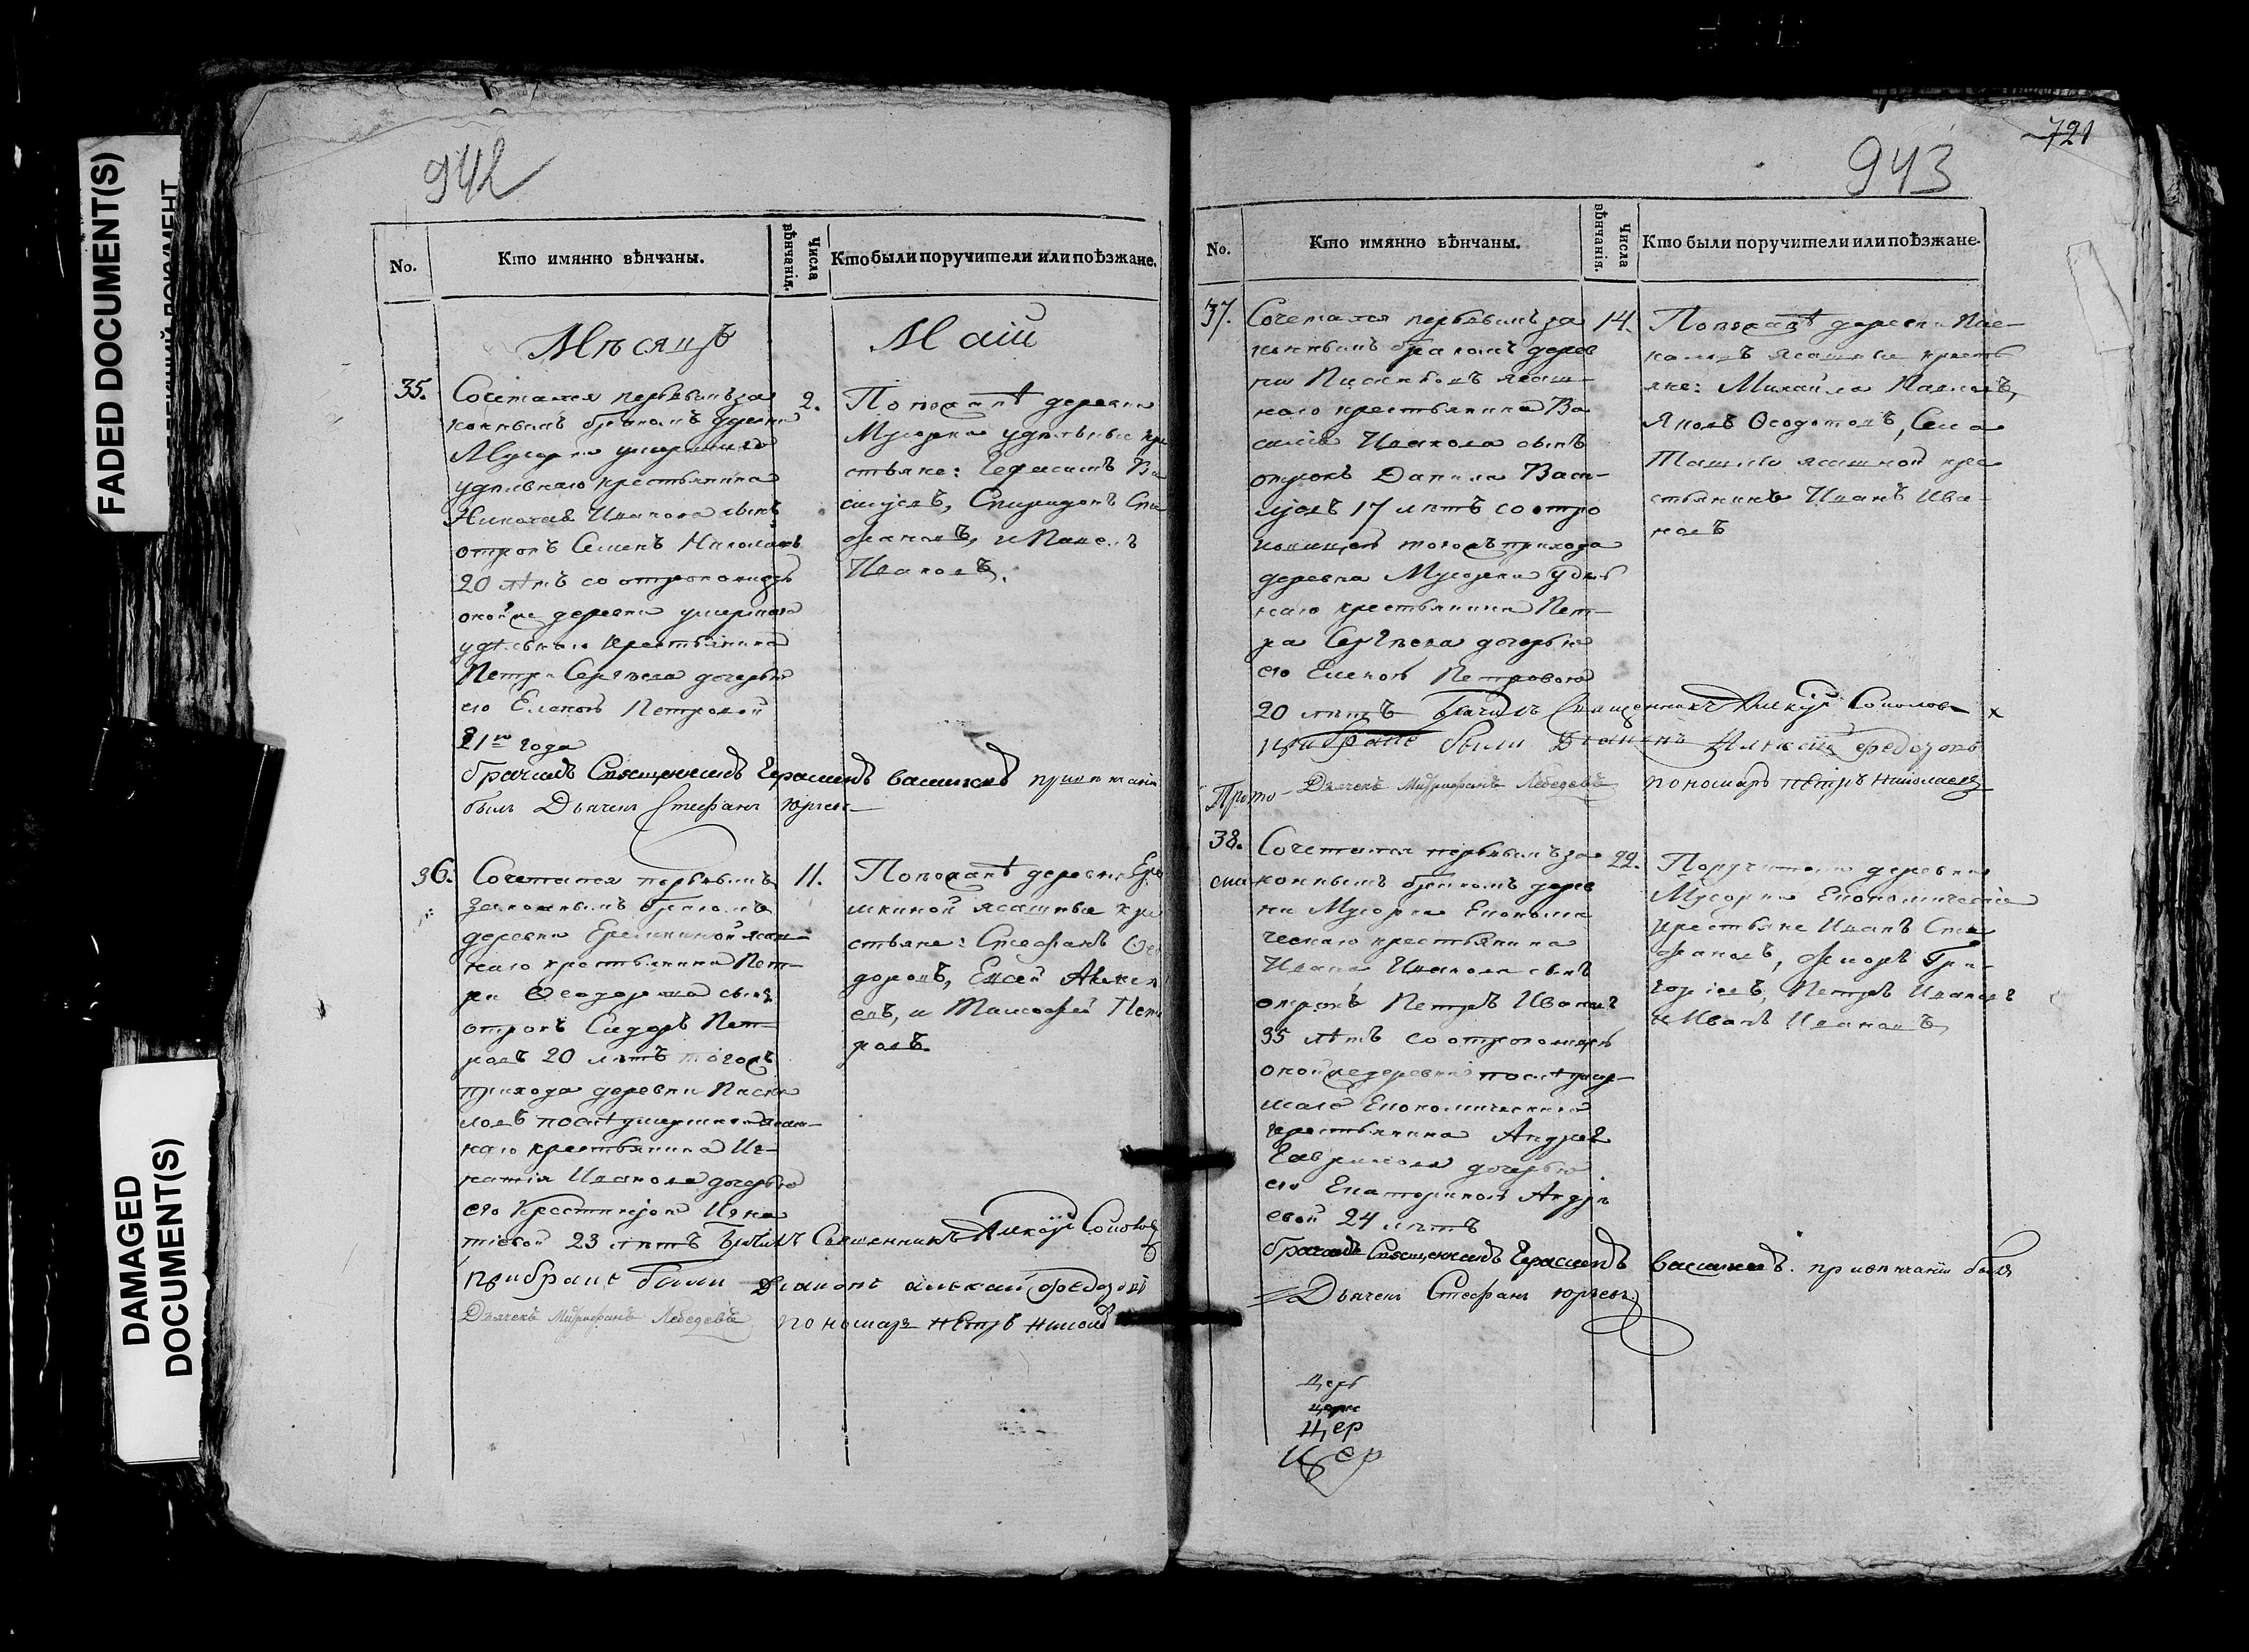 942
No.
Кто имянно вѣнчаны.
Числа вѣнчанія.
Кто были поручители или поѣзжане.
Мѣсяцъ
Маій
35.
Сочетался первымъ за
коннымъ бракомъ деревни
удѣльнаго крестьянина
Николая Иванова сынъ
отрокъ Семенъ Николаевъ
20 лѣтъ со отроковицею
оной же деревни умершаго
удѣльнаго крестьянина
Петра Сергѣева дочерью
его Еленою Петровой
21го года
2.
По поѣздѣ деревни
удѣльные кре
стьяне: Герасимъ Ва
сильевъ, Спиридонъ Сте
фановъ, и Павелъ
Ивановъ.
бракъ вѣнчалъ Священникъ Герасимъ Васильевъ при вѣнчаніи
былъ Дьячекъ Стефанъ Юрьевъ
36.
Сочетался первымъ
законнымъ бракомъ
деревни Еремкиной ясаш
наго крестьянина Пет
ра Ѳеодорова сынъ
отрокъ Сидоръ Пет
ровъ 20 лѣтъ тогожъ
прихода деревни
послѣ умершаго ясаш
наго крестьянина Иг
натія Иванова дочерью
его Крестиньею Игна
тіевой 23 лѣтъ
11.
По поѣздѣ деревни Ере
мкиной ясашные кре
стьяне: Стефанъ Ѳео
доровъ, Елсей Алексѣ
евъ, и Тимофей Пет
ровъ.
Вѣнчалъ Священникъ Алексѣй Соколовъ
при браке были Діаконъ Алексѣй Федоровъ
Дьячекъ Митрофанъ Лебедевъ
пономарь Петръ Николаевъ
943
721
No.
Кто имянно вѣнчаны.
Числа вѣнчанія.
Кто были поручители или поѣзжане.
37.
Сочетался первымъ за
коннымъ бракомъ дерев
ни ясаш
наго крестьянина Ва
силія Иванова сынъ
отрокъ Данила Васи
льевъ 17 лѣтъ со отро
ковицею тогожъ прихода
деревни удѣль
наго крестьянина Пет
ра Сергѣева дочерью
его Еленою Петровою
20 лѣтъ
14.
По поѣздѣ деревни
ясашные кресть
яне: Михайла Павловъ,
Яковъ Ѳеодотовъ, Села
ясашной кре
стьянинъ Иванъ Ива
новъ
Вѣнчалъ Священникъ Алексѣй Соколовъ
при браке были Діаконъ Алексѣй Федоровъ
Дьячекъ Митрофанъ Лебедевъ
пономарь Петръ Николаевъ
Прото
38.
Сочетался первымъ за
коннымъ бракомъ дерев
ни Економи
ческаго крестьянина
Ивана Иванова сынъ
отрокъ Петръ Ивановъ
35 лѣтъ со отроковицею
оной же деревни послѣ умер
шаго Економическаго
крестьянина Андрея
Гаврилова дочерью
его Екатериною Андрѣ
евой 24 лѣтъ
22.
Поручители деревни
Економическіе
крестьяне Иванъ Сте
фановъ, Григорьевъ, Петръ Ивановъ
и Иванъ Ивановъ
бракъ вѣнчалъ Священникъ Герасимъ Васильевъ. при вѣнчаніи былъ
Дьячекъ Стефанъ Юрьевъ
Церк
Цер
Цер
FADED DOCUMENT(S)
DAMAGED DOCUMENT(S)